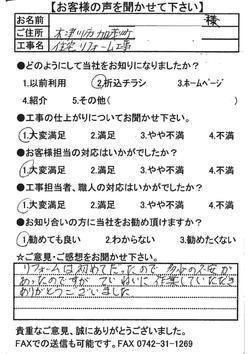 【お客様の声を聞かせて下さい】
お名前 様
ご住所 木津川市加茂町
工事名 住宅リフォーム工事
●どのようにして当社をお知りになりましたか?
1.以前利用 2.折込チラシ 3.ホームページ
4.紹介 5.その他( )
●工事の仕上がりについてお聞かせ下さい。
1.大変満足 2.満足 3.やや不満 4.不満
●お客様担当の対応はいかがでしたか?
1.大変満足 2.満足 3.やや不満 4.不満
●工事担当者、職人の対応はいかがでしたか?
1.大変満足 2.満足 3.やや不満 4.不満
●お知り合いの方に当社をお勧め頂けますか?
1.勧めても良い 2.わからない 3.勧めたくない
☆ご意見・ご感想をお聞かせ下さい
リフォームは初めてだったので 多少の不安が
あったのですが ていねいに作業していただき
ありがとうございました
貴重なご意見、誠にありがとうございました。
FAXでの送信も可能です。FAX 0742-31-1269